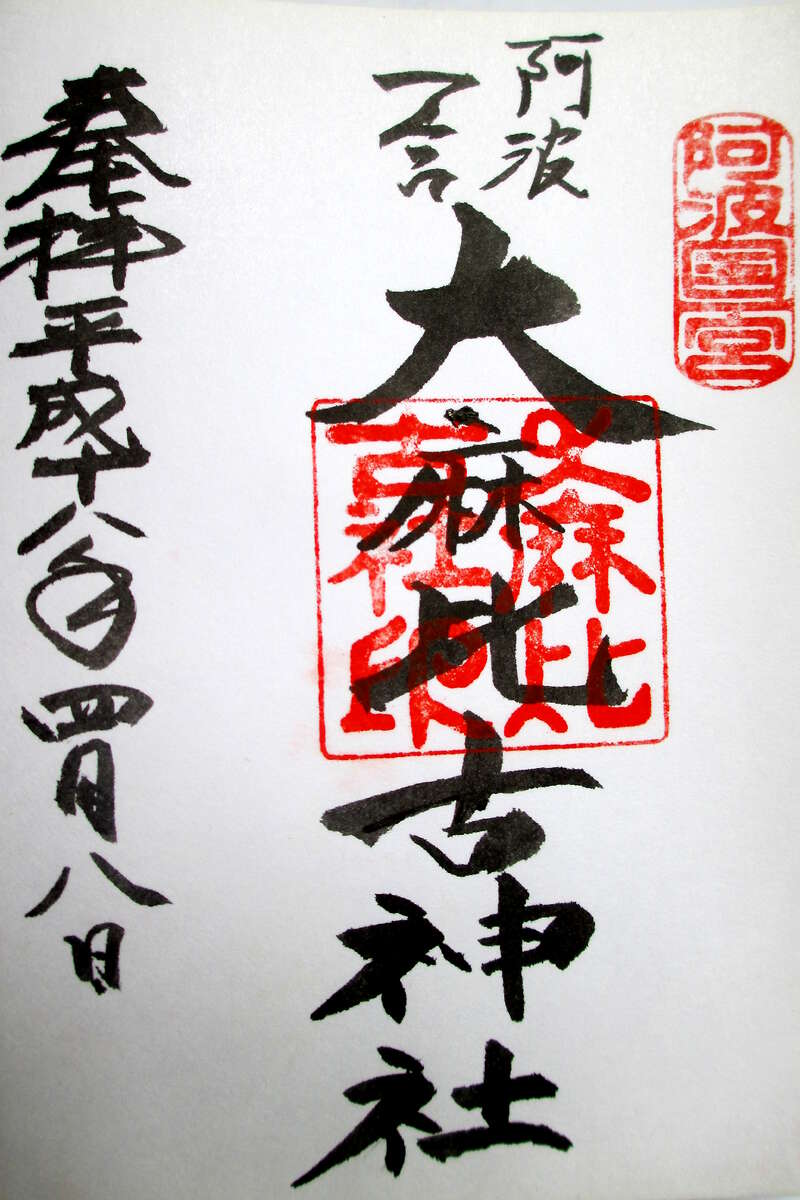 阿波国一宮
阿波
一ノ宮
大麻比古神社
大麻比
古社印
奉拝平成十八年四月八日